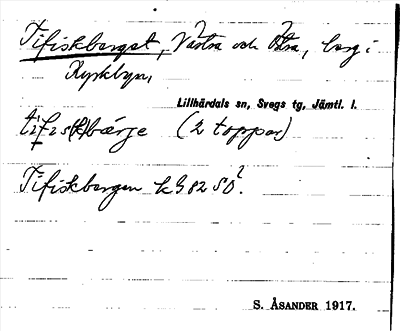 Tifiskberget, Västra och Östra, berg i
Kyrkbyn,
Lillhärdals sn, Svegs tg, Jämtl. l.
tifis(k)bärje (2 toppar)
Tifiskbergen k 982 SO?.
S. ÅSANDER 1917.